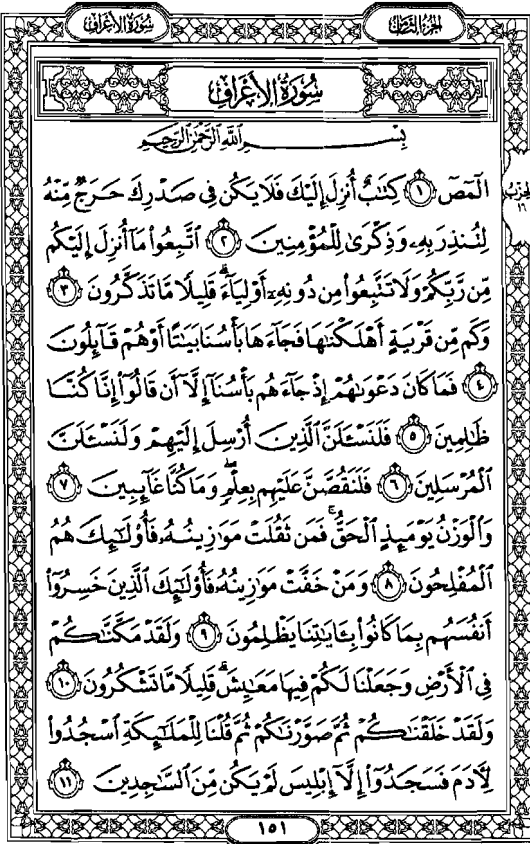 سُورَةُ الأَعْرَافِ
الجُزْءُ الثَّامِنُ
سُورَةُ الأَعْرَافِ
بِسْمِ اللَّهِ الرَّحْمَٰنِ الرَّحِيمِ
الٓمٓصٓ ١ كِتَٰبٌ أُنزِلَ إِلَيْكَ فَلَا يَكُن فِى صَدْرِكَ حَرَجٌ مِّنْهُ
لِتُنذِرَ بِهِۦ وَذِكْرَىٰ لِلْمُؤْمِنِينَ ٢ ٱتَّبِعُوا۟ مَآ أُنزِلَ إِلَيْكُم
مِّن رَّبِّكُمْ وَلَا تَتَّبِعُوا۟ مِن دُونِهِۦٓ أَوْلِيَآءَ ۗ قَلِيلًا مَّا تَذَكَّرُونَ ٣
وَكَم مِّن قَرْيَةٍ أَهْلَكْنَٰهَا فَجَآءَهَا بَأْسُنَا بَيَٰتًا أَوْ هُمْ قَآئِلُونَ
٤ فَمَا كَانَ دَعْوَىٰهُمْ إِذْ جَآءَهُم بَأْسُنَآ إِلَّآ أَن قَالُوٓا۟ إِنَّا كُنَّا
ظَٰلِمِينَ ٥ فَلَنَسْـَٔلَنَّ ٱلَّذِينَ أُرْسِلَ إِلَيْهِمْ وَلَنَسْـَٔلَنَّ
ٱلْمُرْسَلِينَ ٦ فَلَنَقُصَّنَّ عَلَيْهِم بِعِلْمٍ ۖ وَمَا كُنَّا غَآئِبِينَ ٧
وَٱلْوَزْنُ يَوْمَئِذٍ ٱلْحَقُّ ۚ فَمَن ثَقُلَتْ مَوَٰزِينُهُۥ فَأُو۟لَٰٓئِكَ هُمُ
ٱلْمُفْلِحُونَ ٨ وَمَنْ خَفَّتْ مَوَٰزِينُهُۥ فَأُو۟لَٰٓئِكَ ٱلَّذِينَ خَسِرُوٓا۟
أَنفُسَهُم بِمَا كَانُوا۟ بِـَٔايَٰتِنَا يَظْلِمُونَ ٩ وَلَقَدْ مَكَّنَّٰكُمْ
فِى ٱلْأَرْضِ وَجَعَلْنَا لَكُمْ فِيهَا مَعَٰيِشَ ۗ قَلِيلًا مَّا تَشْكُرُونَ ١٠
وَلَقَدْ خَلَقْنَٰكُمْ ثُمَّ صَوَّرْنَٰكُمْ ثُمَّ قُلْنَا لِلْمَلَٰٓئِكَةِ ٱسْجُدُوا۟
لِءَادَمَ فَسَجَدُوٓا۟ إِلَّآ إِبْلِيسَ لَمْ يَكُن مِّنَ ٱلسَّٰجِدِينَ ١١
الحزب
١٦
١٥١